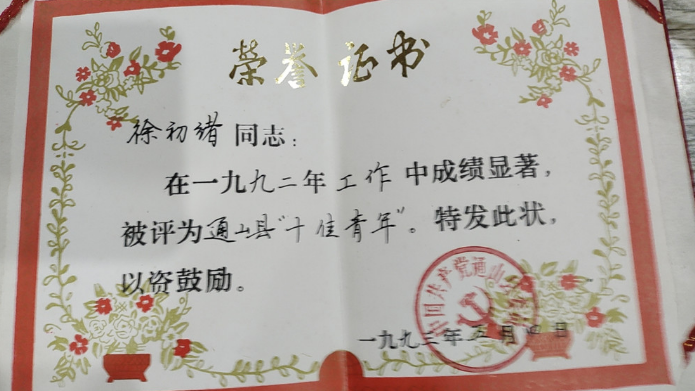 荣誉证书
徐初绪同志：
在一九九二年工作中成绩显著，
被评为通山县“十佳青年”。特发此状，
以资鼓励。
中国共产党通山县
一九九三年五月四日